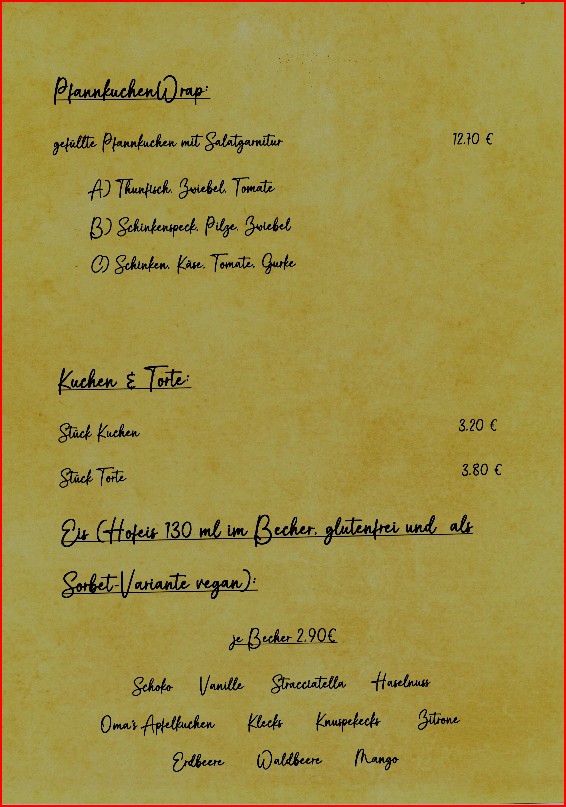 PfannkuchenWrap:
gefüllte Pfannkuchen mit Salatgarnitur 12.70 €
A) Thunfisch, Zwiebel, Tomate
B) Schinkenspeck, Pilze, Zwiebel
C) Schinken, Käse, Tomate, Gurke
Kuchen & Torte:
Stück Kuchen 3.20 €
Stück Torte 3.80 €
Eis (Hofeis 130 ml im Becher, glutenfrei und als
Sorbet-Variante vegan):
je Becher 2.90€
Schoko Vanille Stracciatella Haselnuss
Oma's Apfelkuchen Klecks Knuspekecks Zitrone
Erdbeere Waldbeere Mango